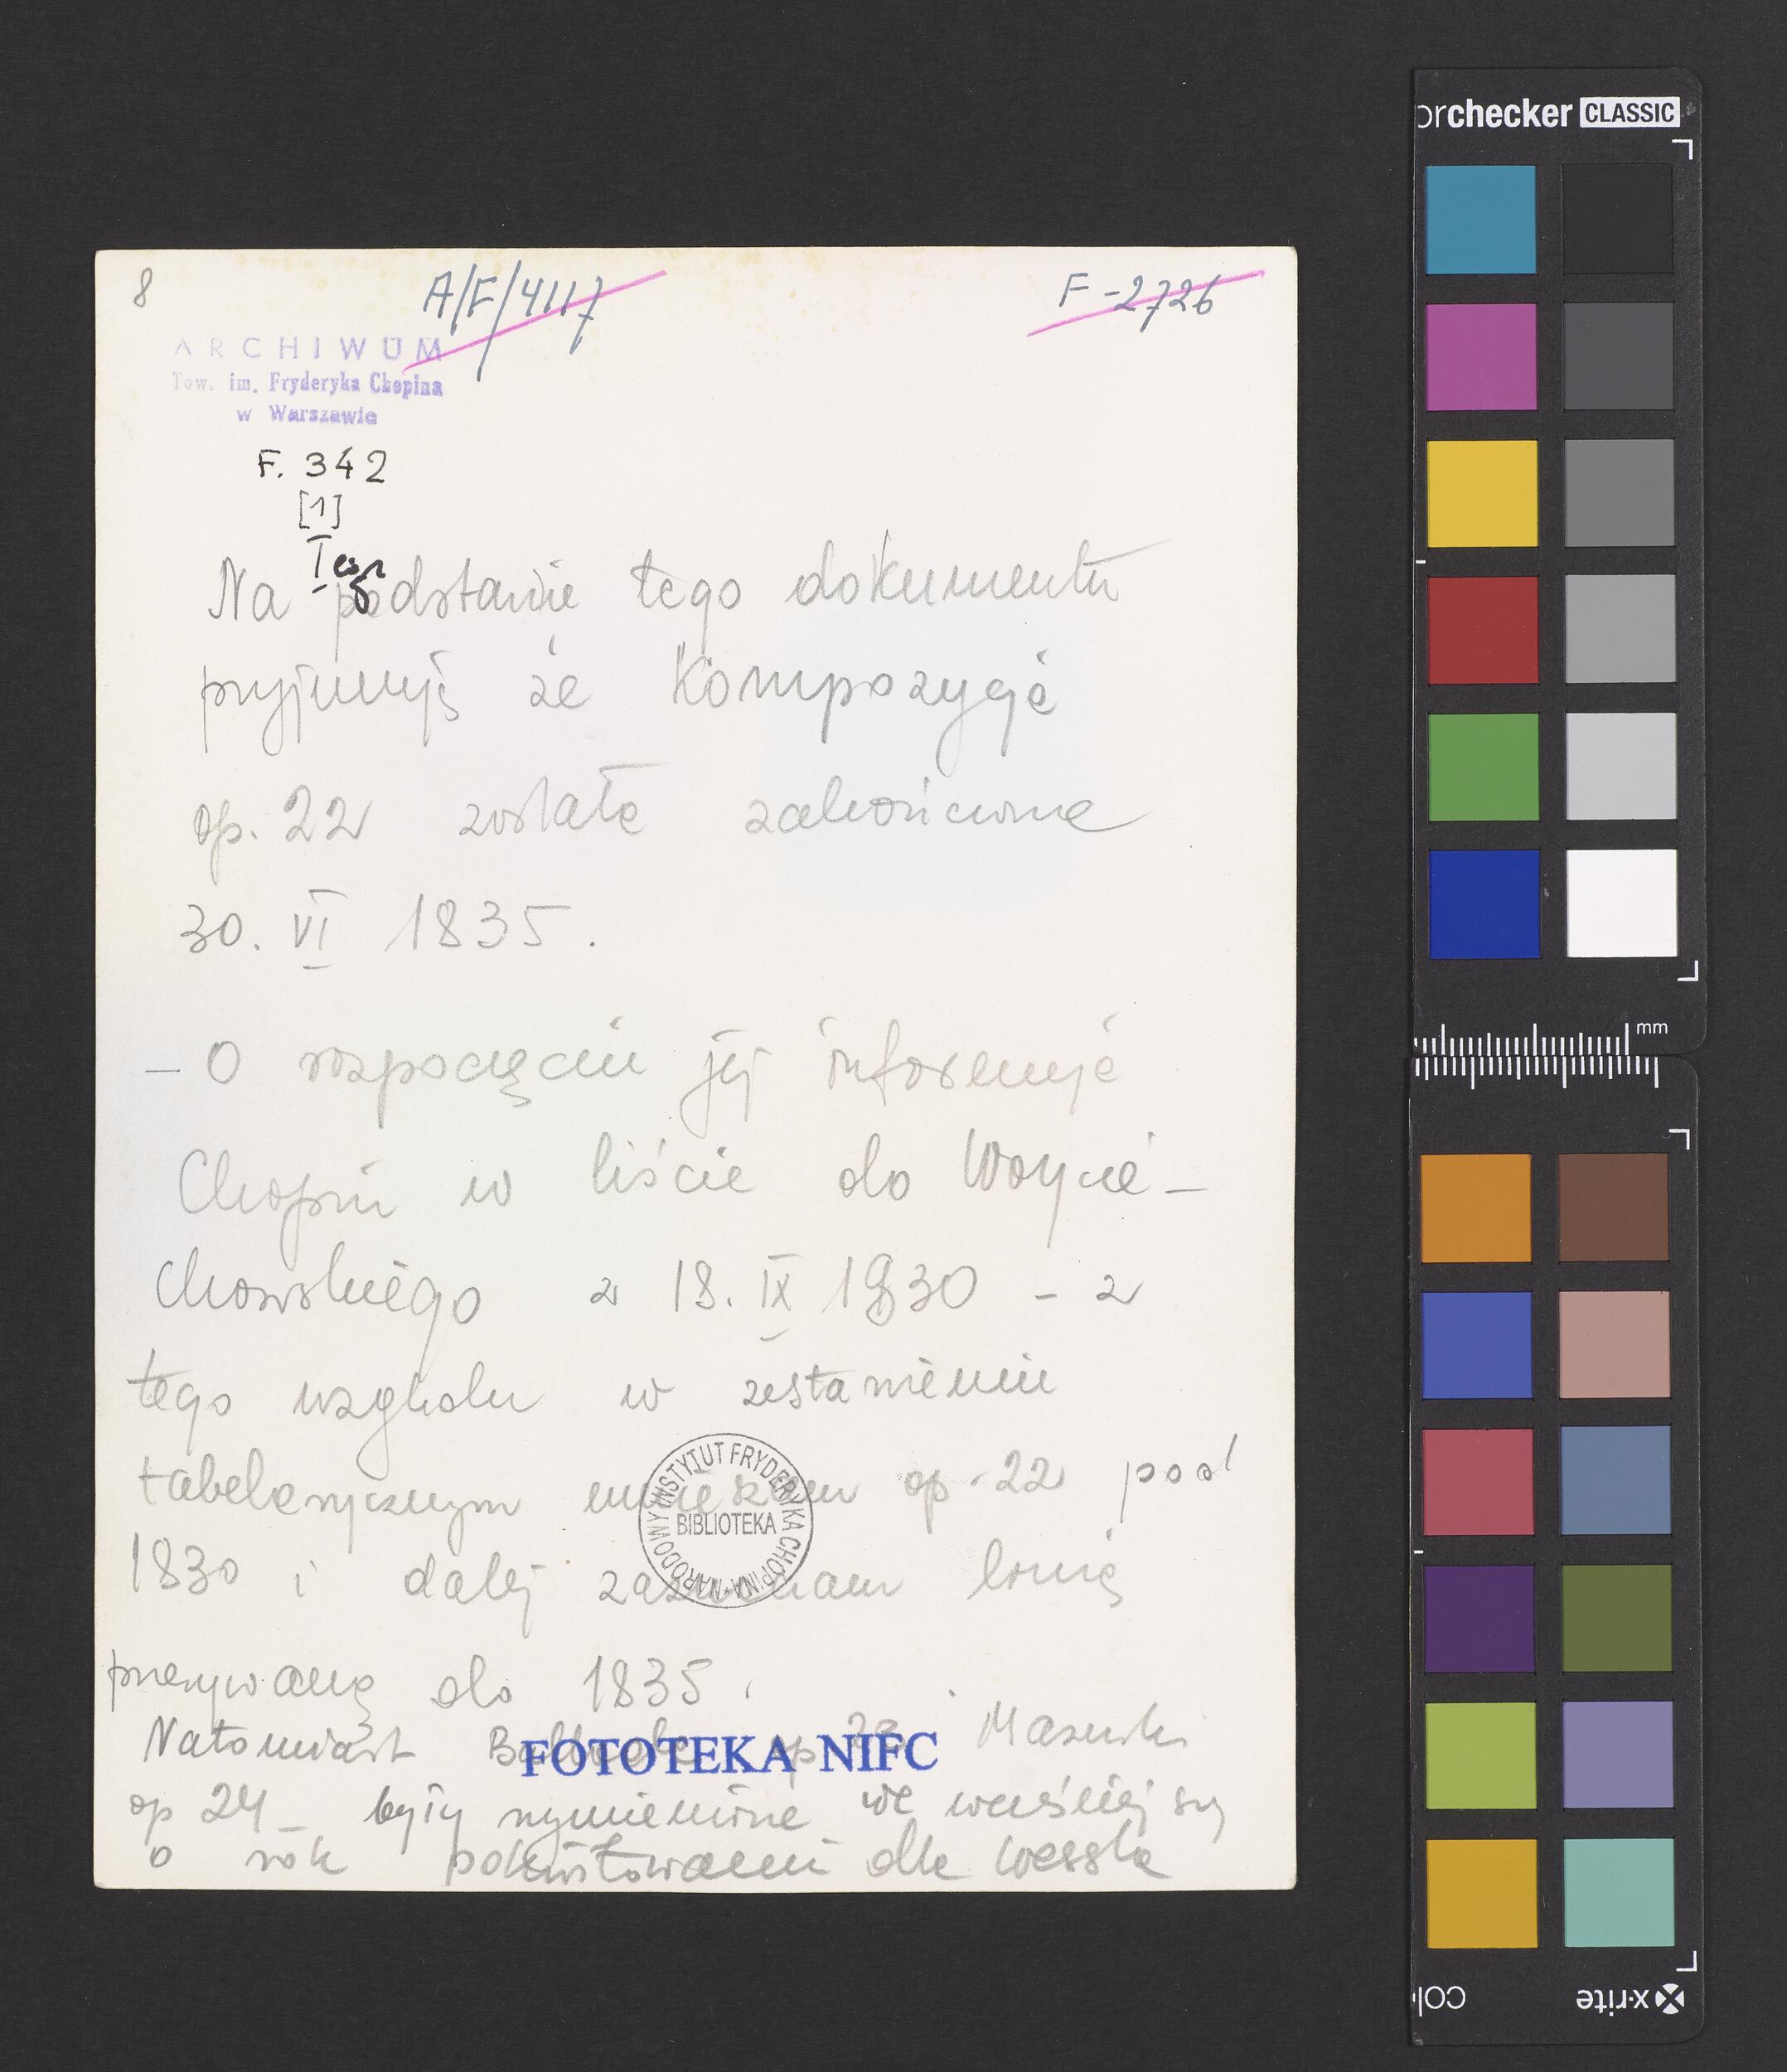 8
A/F/4117
F-2726
ARCHIWUM
Tow. im. Fryderyka Chopina
w Warszawie
F. 342
[1]
I egz
Na podstawie tego dokumentu
przyjmuję że kompozycja
op. 22 została zakończona
30. VI 1835.
– O rozpoczęciu jej informuje
Chopin w liście do Woycie-
chowskiego z 18. IX 1830 – z
tego względu w zestawieniu
tabelarycznym umieszczam op. 22 pod
1830 i dalej zaznaczam linię
przerywaną do 1835.
Natomiast Ballada op 23 i Mazurki
op 24 – były wymienione we wcześniejszym
o rok pokwitowaniu dla Wessla
NARODOWY INSTYTUT FRYDERYKA CHOPINA
BIBLIOTEKA
FOTOTEKA NIFC
orchecker CLASSIC
mm
x-rite
col